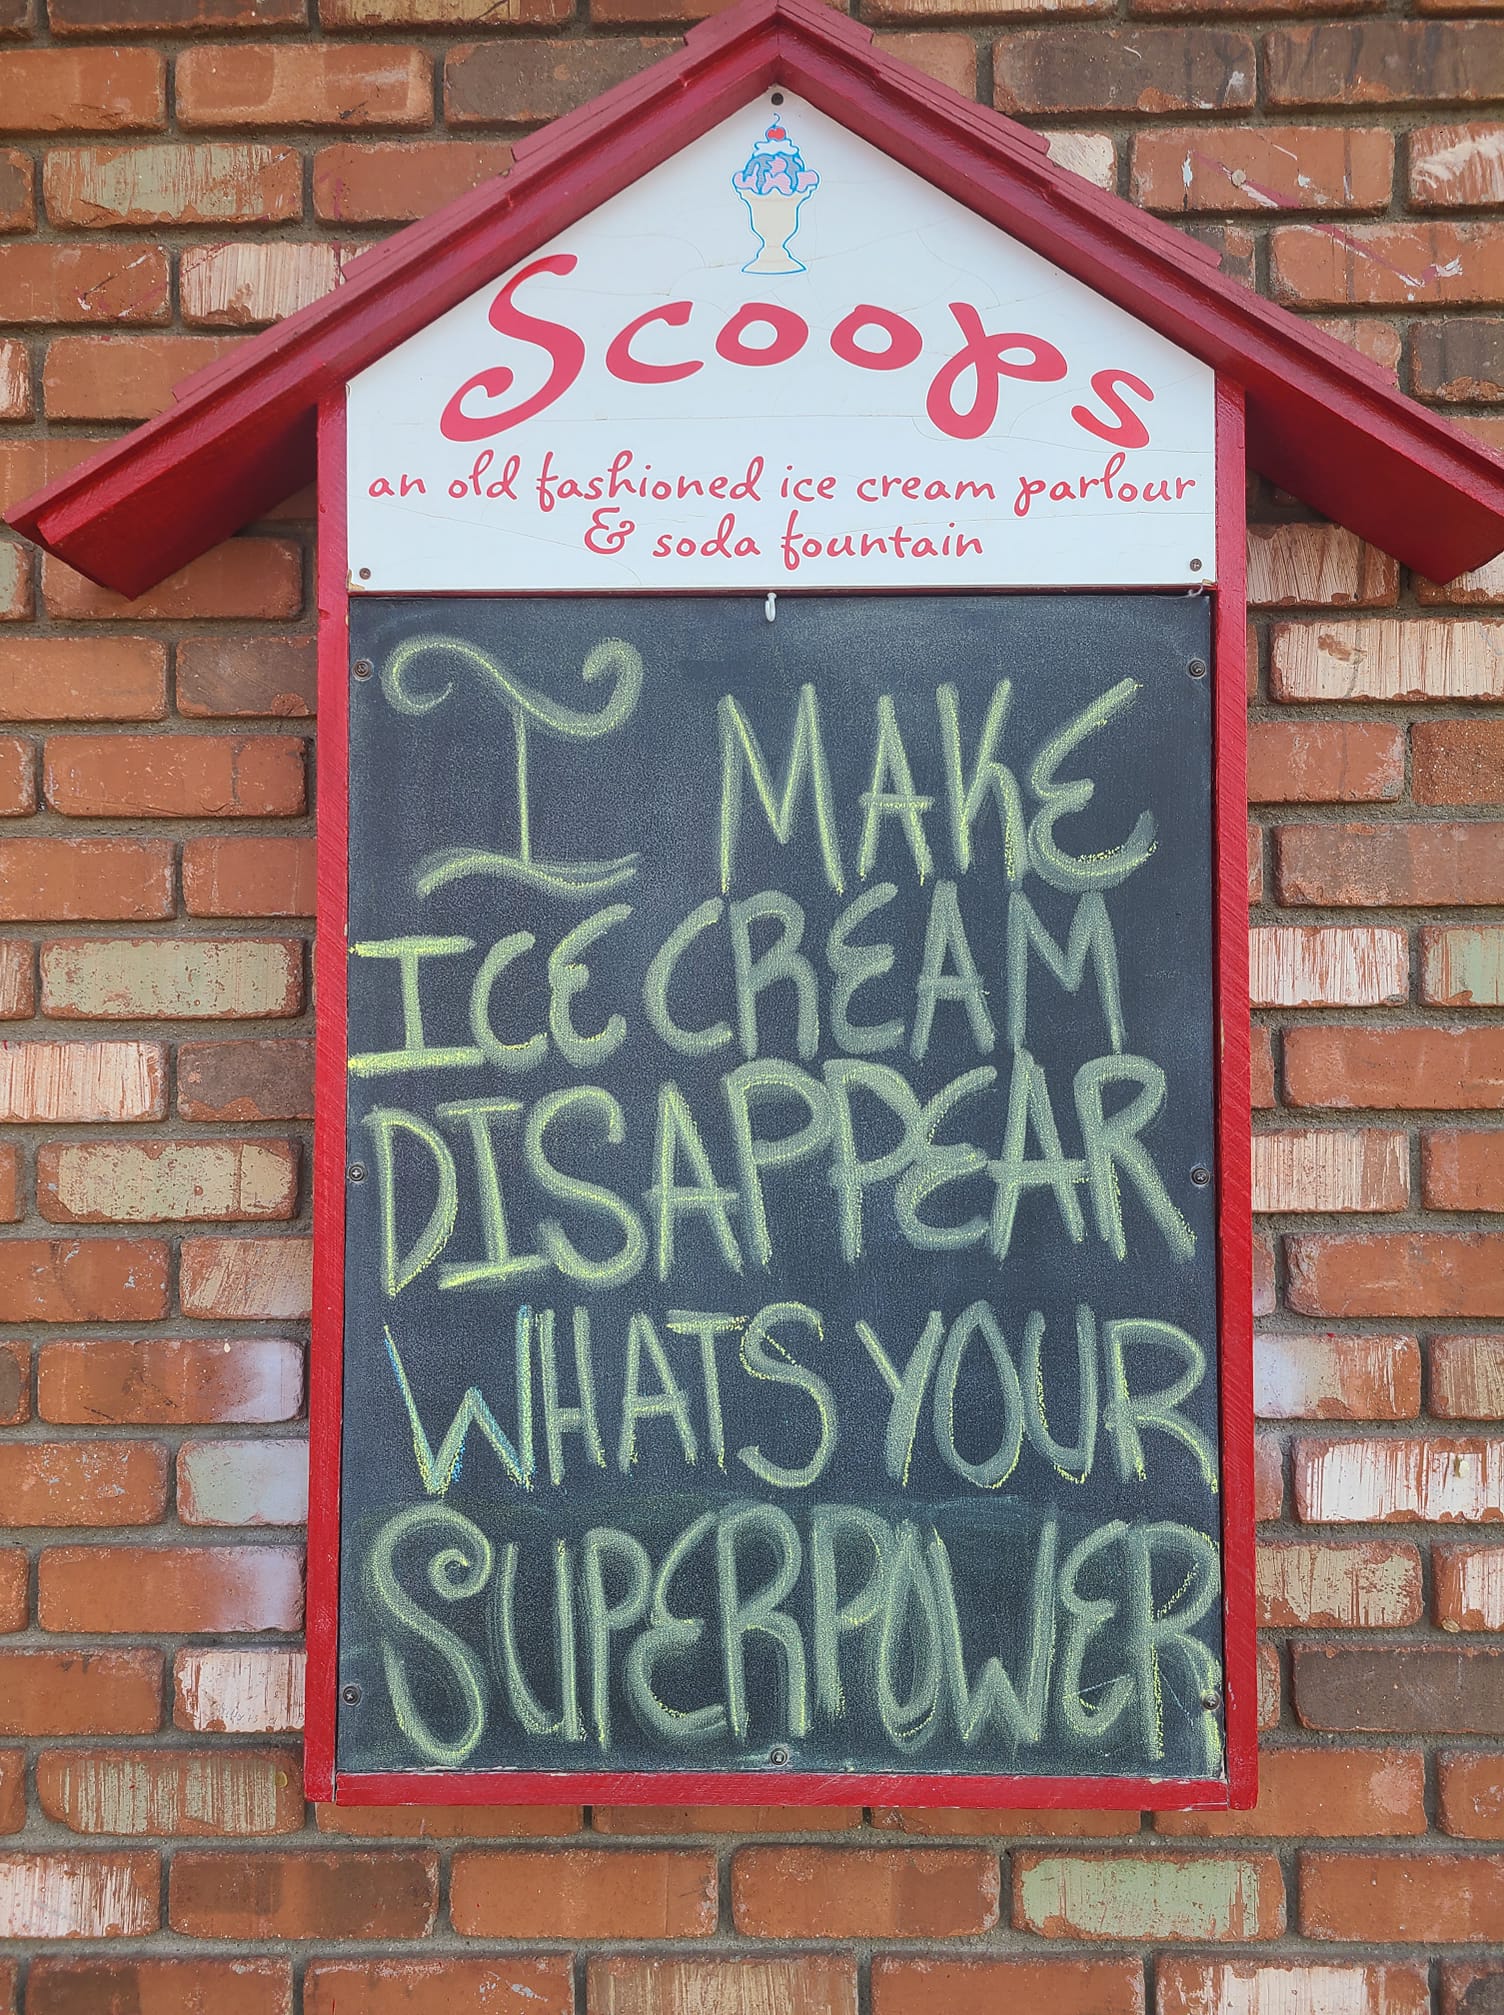 Scoops
an old fashioned ice cream parlour
& soda fountain
I MAKE
ICE CREAM
DISAPPEAR
WHATS YOUR
SUPERPOWER